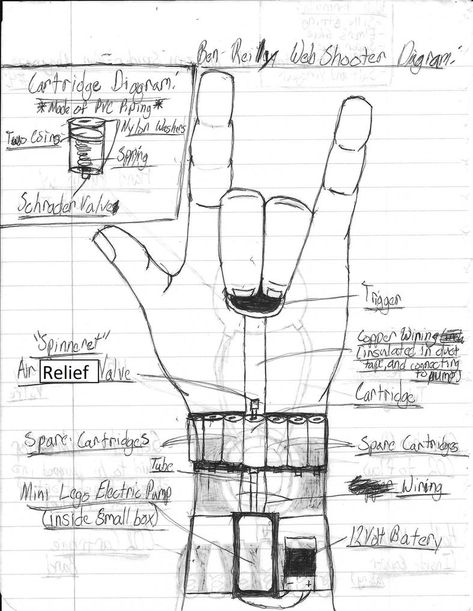 Ben-Reilly Web Shooter Diagram:
Cartridge Diagram:
*Made of PVC Piping*
Nylon Washers
Two Casings
Spring
Schrader Valve
Trigger
"Spinneret"
Air Relief Valve
Copper Wiring
(insulated in duct
tape, and connecting
to pump)
Cartridge
Spare Cartridges
Spare Cartridges
Tube
Wiring
Mini Lego Electric Pump
(inside small box)
12 Volt Batery
- +